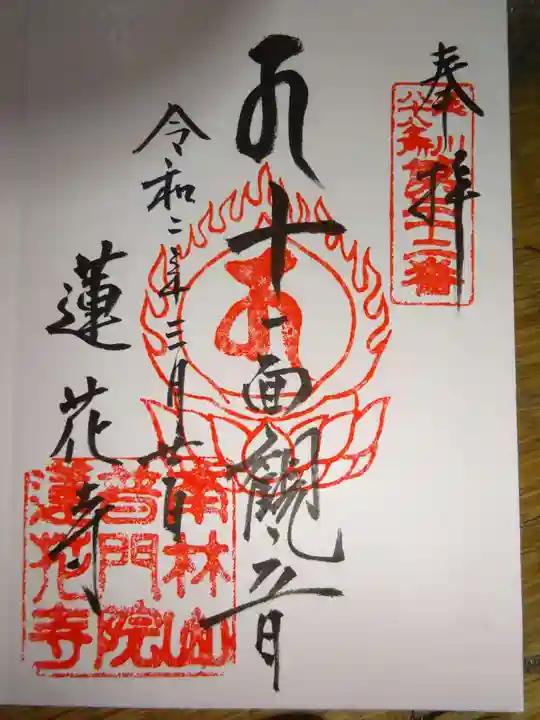 奉拝
十一面観音
令和二年三月廿日
蓮花寺
八十八ヶ所
番
南林山
普門院
蓮花寺